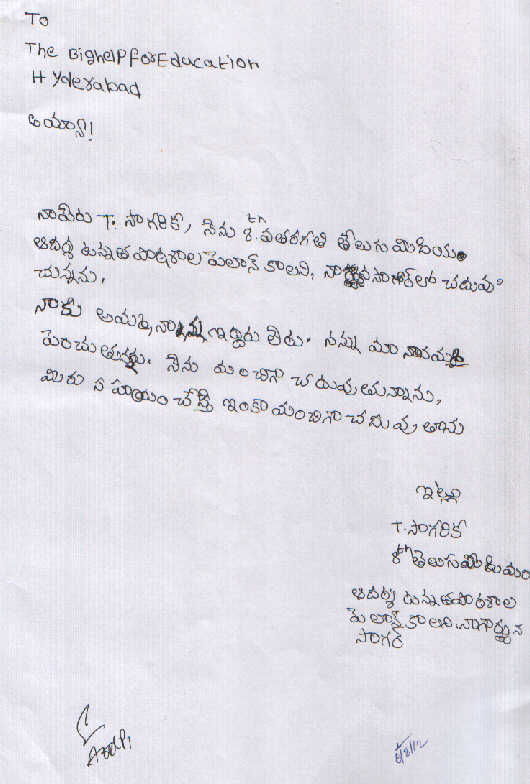 To
The BighelPforEducation
Hyderabad
అయ్యా!
నాపేరు T. సాగరిక, నేను 8th వతరగతి తెలుగు మిడియం
ఆదర్శ ఉన్నత పాఠశాల పైలాన్ కాలని, నాగార్జున సాగర్‌లో చదువు
చున్నను.
నాకు అమ్మ, నాన్న ఇద్దరు లేరు. నన్ను మా నానయ్మ
పెంచుతున్నది. నేను మంచిగా చదువుతున్నాను,
మీరు సహాయం చేస్తే ఇంకా మంచిగా చదువుతాను
ఇట్లు
T. సాగరిక
8th తెలుగు మీడియం
ఆదర్శ ఉన్నత పాఠశాల
పైలాన్ కాలని నాగార్జున
సాగర్